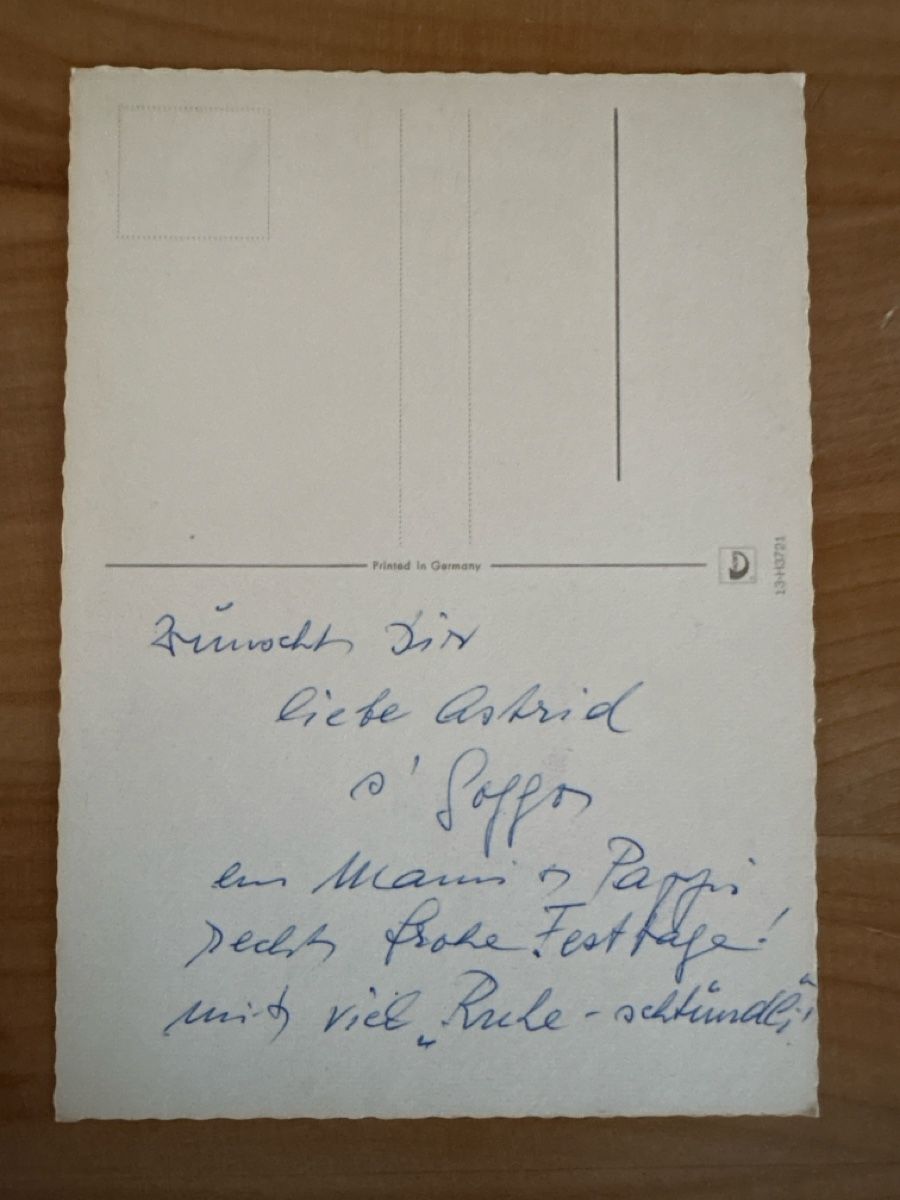 Printed in Germany
13-H3721
Wünscht Dir
liebe Astrid
s'
Mami Pappi
recht frohe Festtage!
mit viel „Ruhe-schtündli"